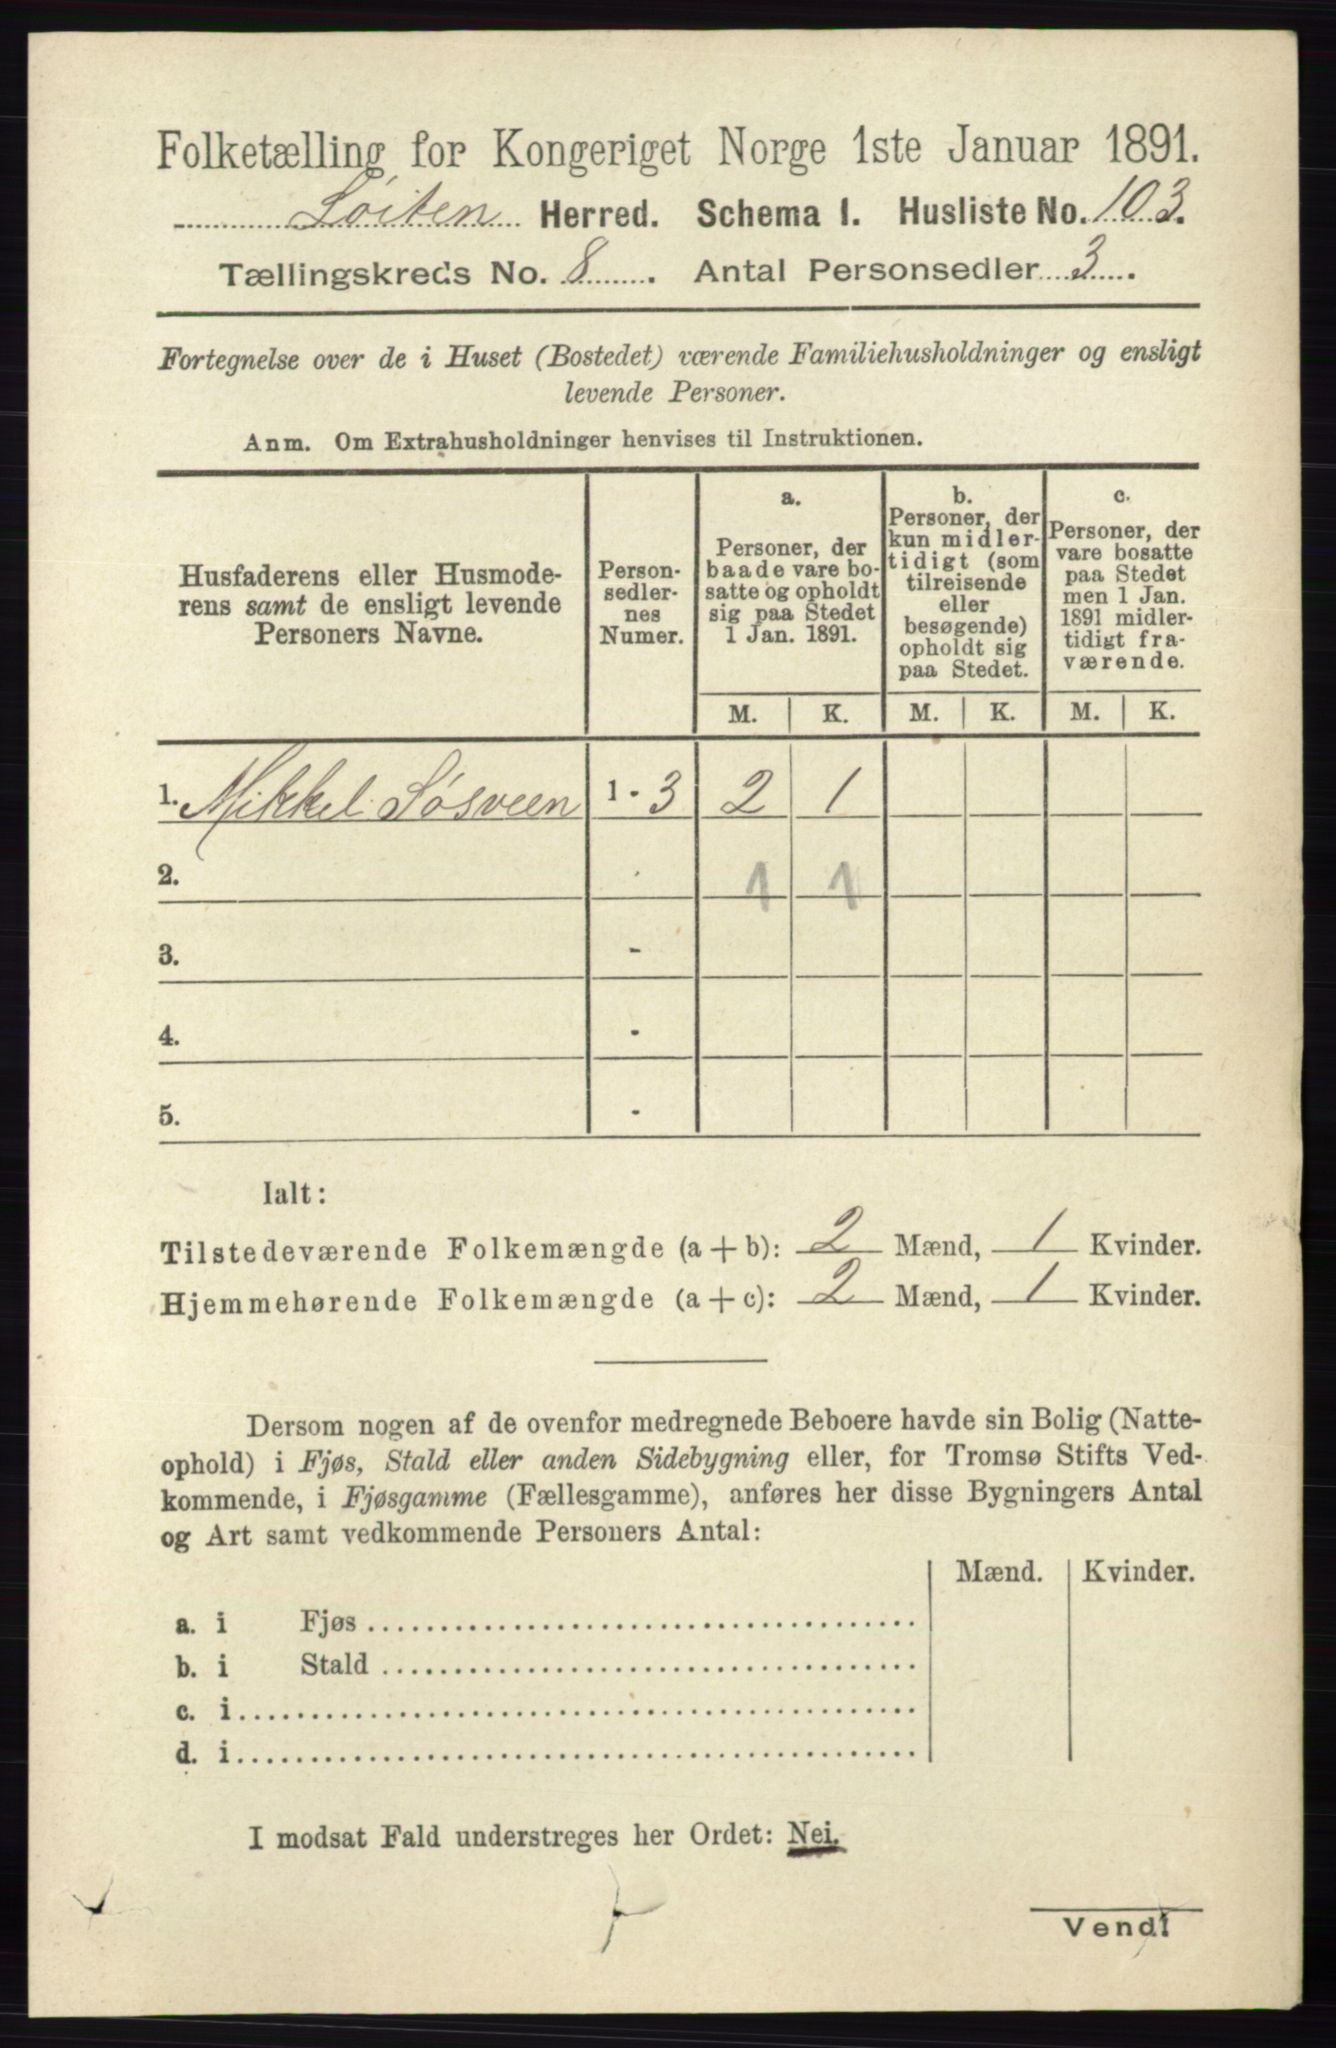 Folketælling for Kongeriget Norge 1ste Januar 1891.
Løiten Herred. Schema I. Husliste No. 103.
Tællingskreds No. 8. Antal Personsedler 3.
Fortegnelse over de i Huset (Bostedet) værende Familiehusholdninger og ensligt
levende Personer.
Anm. Om Extrahusholdninger henvises til Instruktionen.
Husfaderens eller Husmode-
rens samt de ensligt levende
Personers Navne.
Person-
sedler-
nes
Numer.
a.
Personer, der
baade vare bo-
satte og opholdt
sig paa Stedet
1 Jan. 1891.
b.
Personer, der
kun midler-
tidigt (som
tilreisende
eller
besøgende)
opholdt sig
paa Stedet.
c.
Personer, der
vare bosatte
paa Stedet
men 1 Jan.
1891 midler-
tidigt fra-
værende.
M. K. M. K. M. K.
1. Mikkel Søsveen 1 - 3 2 1
2. - 1 1
3. -
4. -
5. -
Ialt:
Tilstedeværende Folkemængde (a + b): 2 Mænd, 1 Kvinder.
Hjemmehørende Folkemængde (a + c): 2 Mænd, 1 Kvinder.
Dersom nogen af de ovenfor medregnede Beboere havde sin Bolig (Natte-
ophold) i Fjøs, Stald eller anden Sidebygning eller, for Tromsø Stifts Ved-
kommende, i Fjøsgamme (Fællesgamme), anføres her disse Bygningers Antal
og Art samt vedkommende Personers Antal:
Mænd. Kvinder.
a. i Fjøs
b. i Stald
c. i
d. i
I modsat Fald understreges her Ordet: Nei.
Vend!